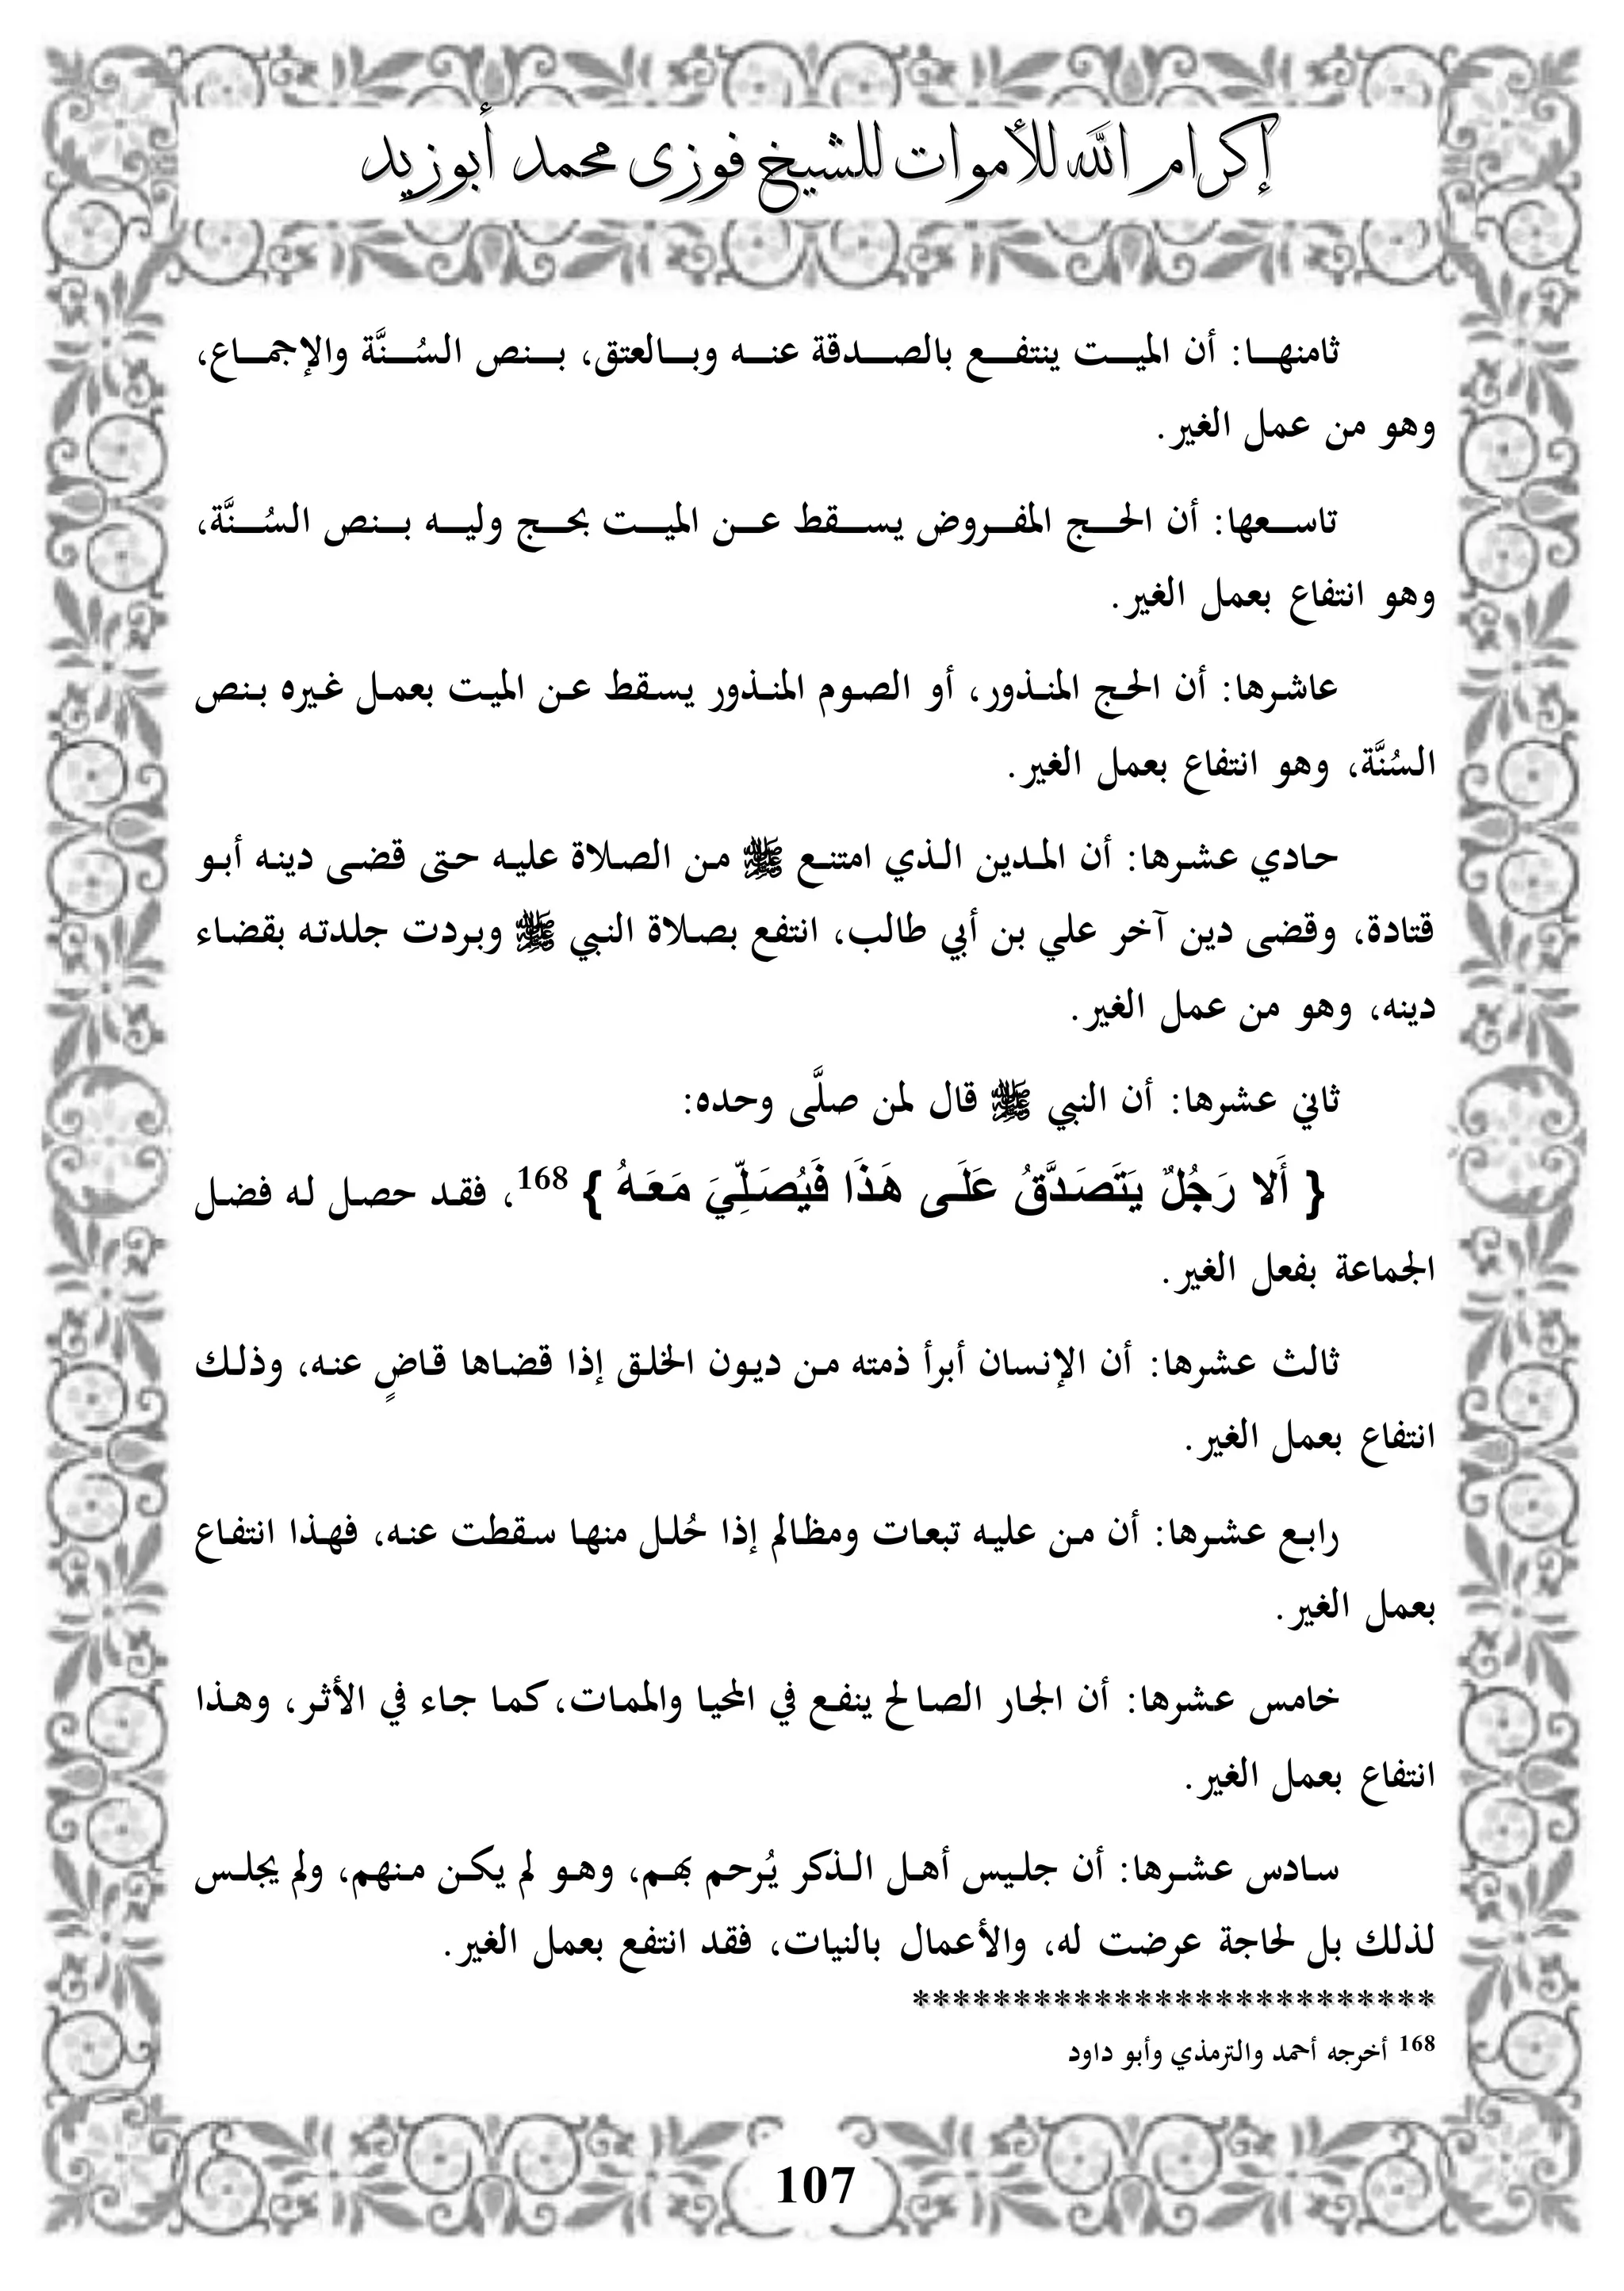 إكرام الله للأموات للشيخ فوزى محمد أبوزيد
ثامنها: أن الميت ينتفع بالصدقة عنه وبالعتق، بنص السُنَّة والإجماع،
وهو من عمل الغير.
تاسعها: أن الحج المفروض يسقط عن الميت بحج وليه بنص السُنَّة،
وهو انتفاع بعمل الغير.
عاشرها: أن الحج المنذور، أو الصوم المنذور يسقط عن الميت بعمل غيره بنص
السُنَّة، وهو انتفاع بعمل الغير.
حادي عشرها: أن المدين الذي امتنع ﷺ من الصلاة عليه حتى قضى دينه أبو
قتادة، وقضى دين آخر علي بن أبي طالب، انتفع بصلاة النبي ﷺ وبردت جلدته بقضاء
دينه، وهو من عمل الغير.
ثاني عشرها: أن النبي ﷺ قال لمن صلَّى وحده:
{ أَلا رَجُلٌ يَتَصَدَّقُ عَلَى هَذَا فَيُصَلِّيَ مَعَهُ } 168، فقد حصل له فضل
الجماعة بفعل الغير.
ثالث عشرها: أن الإنسان أبرأ ذمته من ديون الخلق إذا قضاها قاضٍ عنه، وذلك
انتفاع بعمل الغير.
رابع عشرها: أن من عليه تبعات ومظالم إذا حُلل منها سقطت عنه، فهذا انتفاع
بعمل الغير.
خامس عشرها: أن الجار الصالح ينفع في المحيا والممات، كما جاء في الأثر، وهذا
انتفاع بعمل الغير.
سادس عشرها: أن جليس أهل الذكر يُرحم بهم، وهو لم يكن منهم، ولم يجلس
لذلك بل لحاجة عرضت له، والأعمال بالنيات، فقد انتفع بعمل الغير.
**************************
168 أخرجه أحمد والترمذي وأبو داود
107